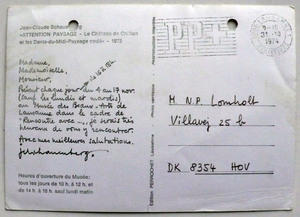 Jean-Claude Schauenberg
«ATTENTION PAYSAGE - Le Château de Chillon
et les Dents-du-Midi-Paysage codé» - 1973
Madame,
Mademoiselle,
Monsieur,
Présent chaque jour du 4 au 17 nov.
(sauf les lundis et mardis)
au Musée des Beaux-Arts de
Lausanne dans le cadre de
"Rencontre avec ...", je serais très
heureux de vous y rencontrer.
Avec mes meilleures salutations.
Heures d'ouverture du Musée:
tous les jours de 10 h. à 12 h. et
de 14 à 18 h. sauf lundi matin
Edition PERROCHET Lausanne
PP
31.10
1974
M N.P. Lomholt
Villavej 25 b
DK 8354 HOV